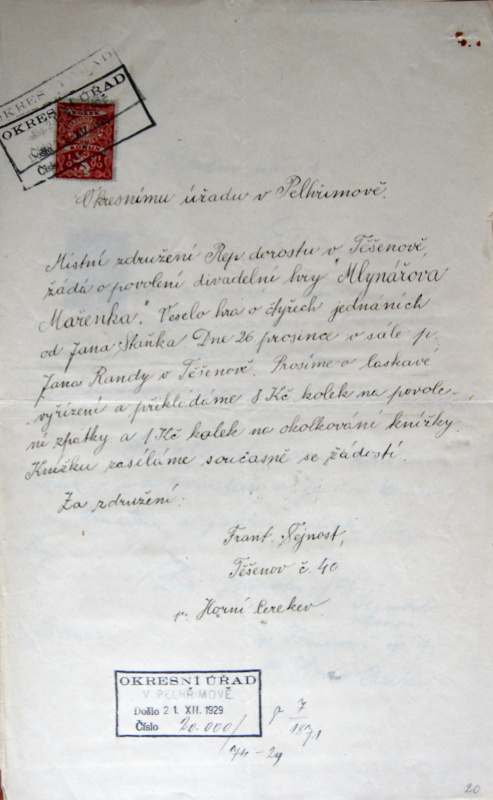 OKRESNÍ ÚŘAD
OKRESNÍ ÚŘAD
Došlo
Číslo
KOLEK
Okresnímu úřadu v Pelhřimově.
Místní združení Rep. dorostu v Těšenově,
žádá o povolení divadelní hry "Mlynářova
Mařenka". Veselo hra o čtyřech jednáních
od Jana Staňka Dne 26. prosince v sále p.
Jana Randy v Těšenově. Prosíme o laskavé
vyřízení a přikládáme 8 Kč kolek na povole-
ní zpátky a 1 Kč kolek na okolkování knížky.
Knížku zasíláme současně se žádostí.
Za združení:
Frant. Nejnost,
Těšenov č. 40
p. Horní Cerekev.
OKRESNÍ ÚŘAD
V PELHŘIMOVĚ
Došlo 21. XII. 1929
Číslo 20.000/
7/1871
20